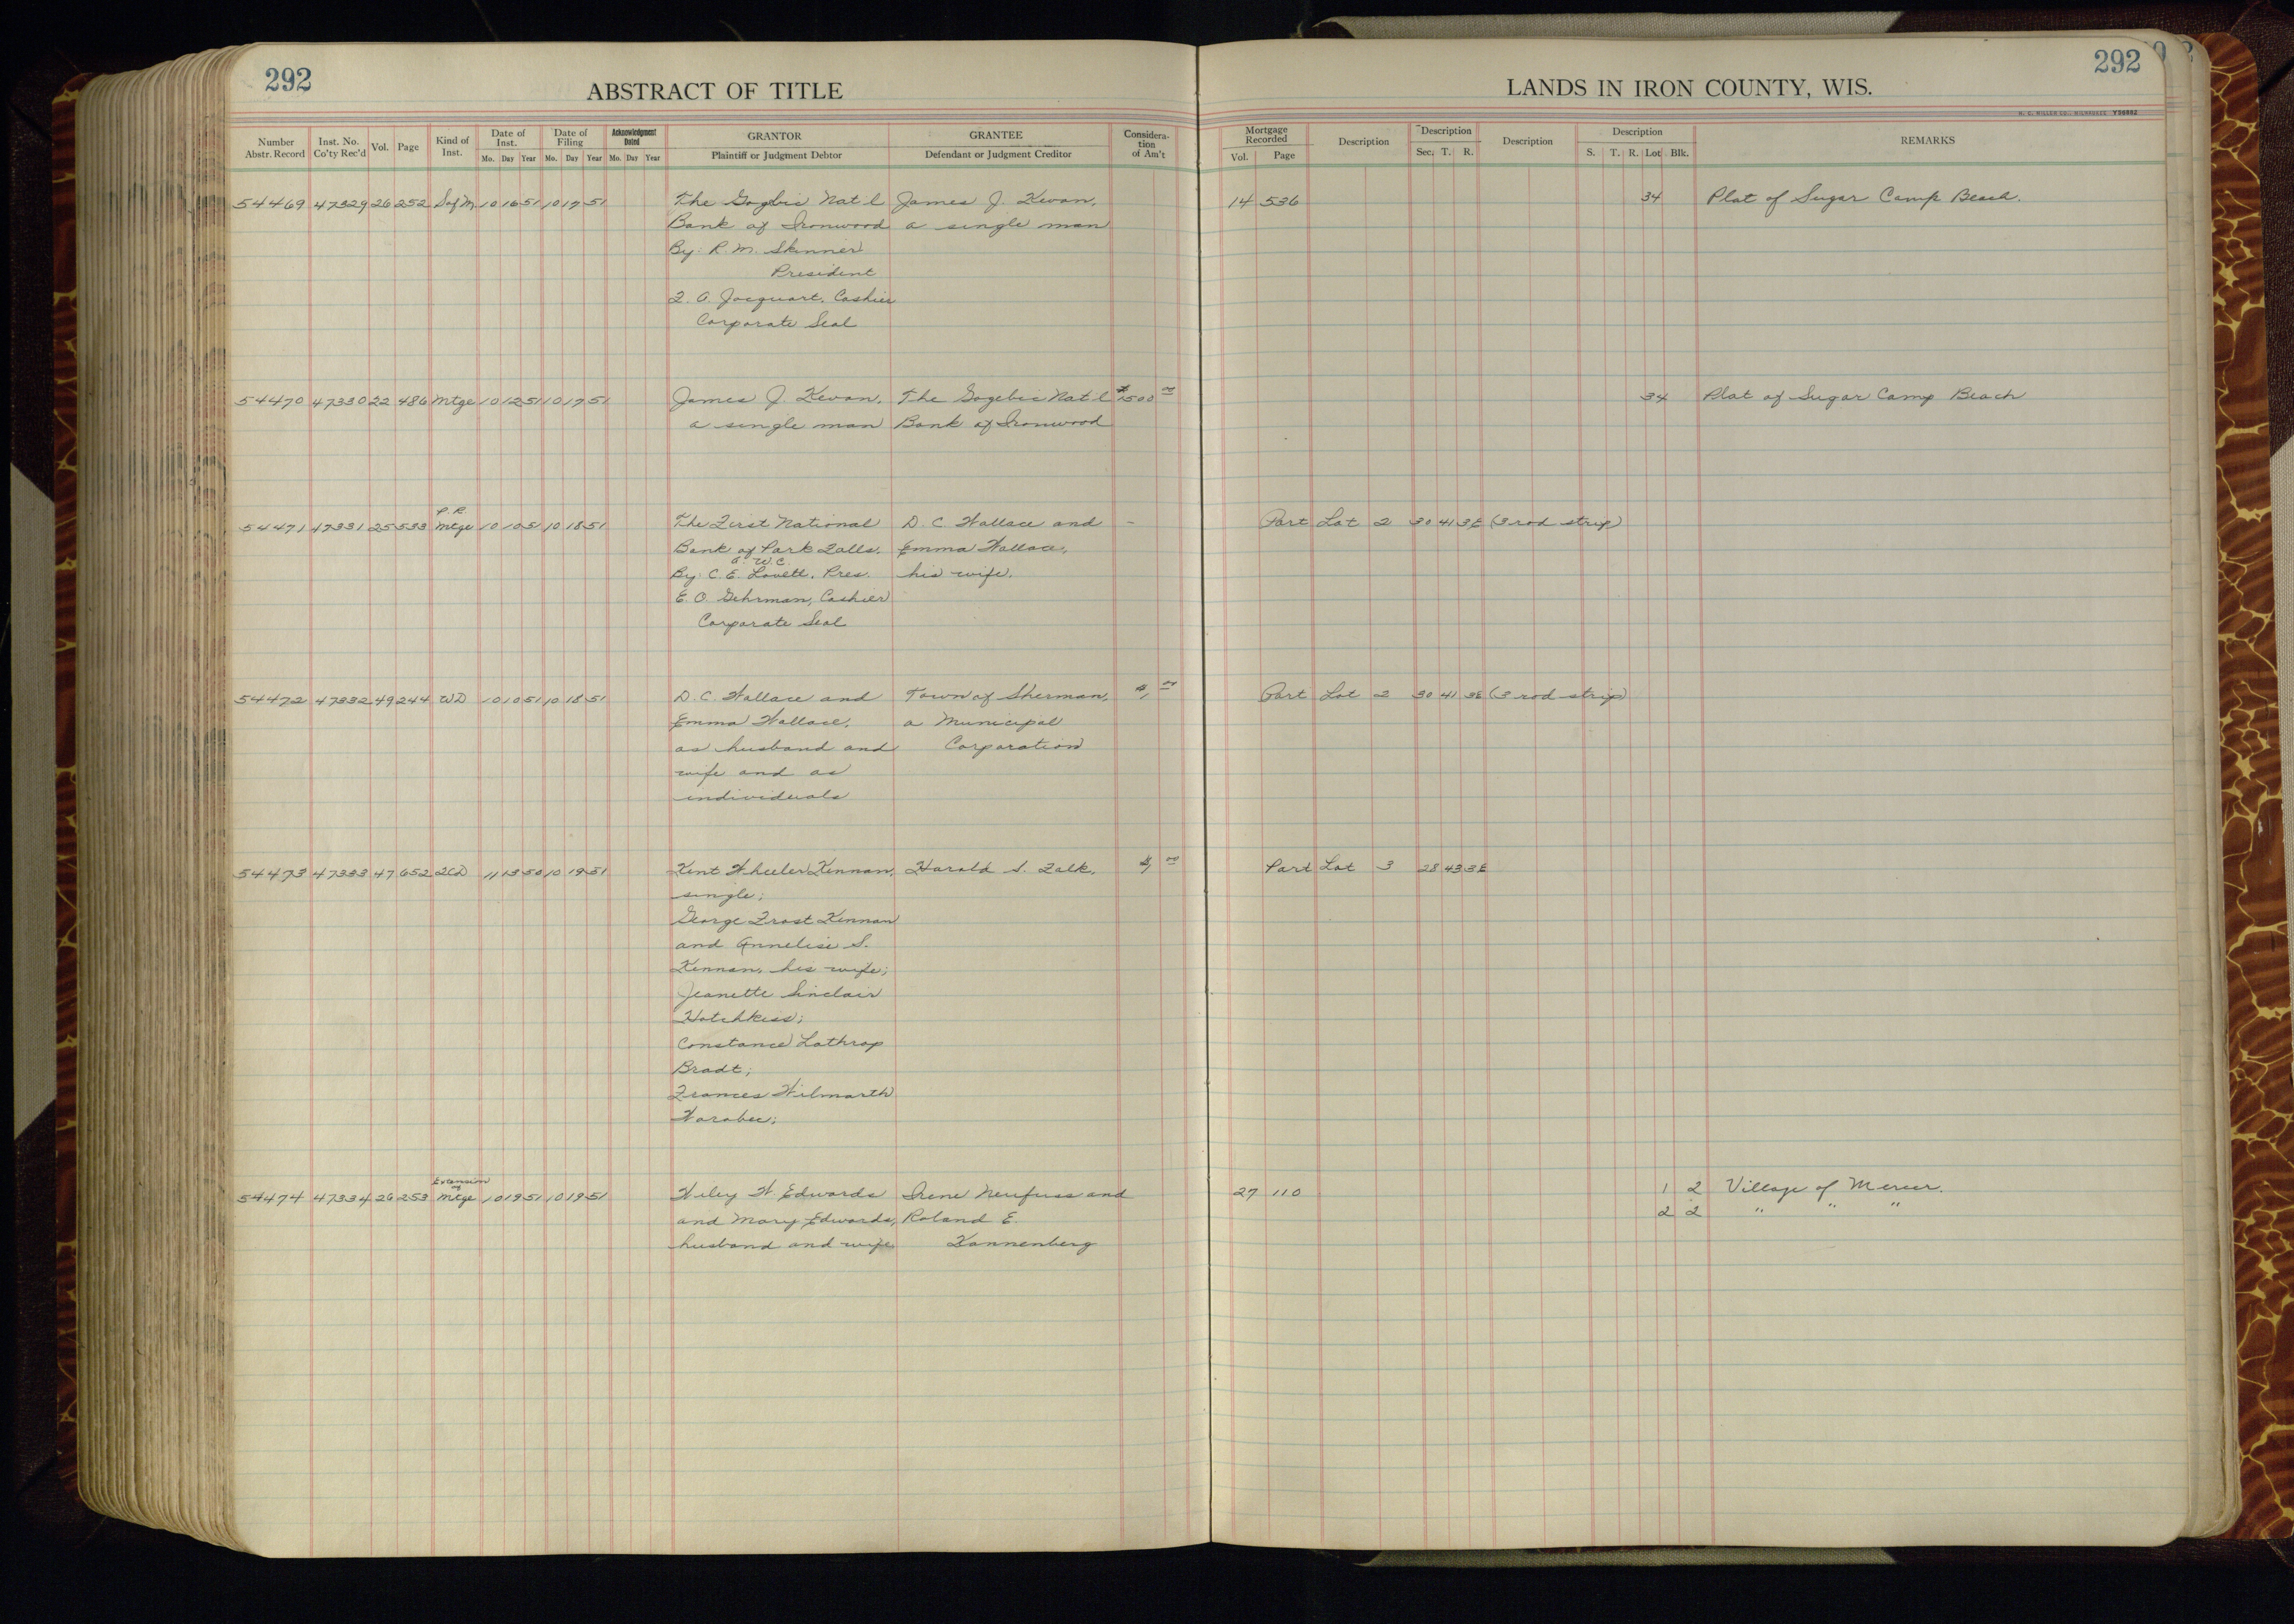 292
ABSTRACT OF TITLE
Number Abstr. Record
Inst. No. Co'ty Rec'd
Vol.
Page
Kind of Inst.
Date of Inst.
Mo. Day Year
Date of Filing
Mo. Day Year
Acknowledgment Dated
Mo. Day Year
GRANTOR
Plaintiff or Judgment Debtor
GRANTEE
Defendant or Judgment Creditor
Considera-
tion
of Am't
292
LANDS IN IRON COUNTY, WIS.
H. C. MILLER CO., MILWAUKEE Y56862
Mortgage Recorded
Vol. Page
Description
Description
Sec. T. R.
Description
Description
S. T. R. Lot Blk.
REMARKS
54469 47329 26 252 S of M 10 16 51 10 17 51 The Gogebic Nat'l James J. Kevan, 14 536 34 Plat of Sugar Camp Beach.
Bank of Ironwood a single man
By: R. M. Skinner
President
F. A. Jacquart, Cashier
Corporate Seal
54470 47330 22 486 Mtge 10 12 51 10 17 51 James J. Kevan, The Gogebic Nat'l $1500 00 34 Plat of Sugar Camp Beach
a single man Bank of Ironwood
P. R.
54471 47331 25 533 Mtge 10 10 51 10 18 51 The First National D. C. Wallace and - Part Lot 2 30 41 3E (3 rod strip)
Bank of Park Falls, Emma Wallace,
By: C. E. Lovett, Pres. his wife.
E. O. Gehrman, Cashier
Corporate Seal
54472 47332 49 244 WD 10 10 51 10 18 51 D. C. Wallace and Town of Sherman, $1, 00 Part Lot 2 30 41 3E (3 rod strip)
Emma Wallace, a Municipal
as husband and Corporation
wife and as
individuals
54473 47333 47 652 QCD 11 13 50 10 19 51 Kent Wheeler Kennan, Harold S. Falk, $1, 00 Part Lot 3 28 43 3E
single;
George Frost Kennan
and Annelise S.
Kennan, his wife;
Jeanette Sinclair
Hotchkiss;
Constance Lathrop
Bradt;
Frances Wilmarth
Worobec;
Extension of
54474 47334 26 253 Mtge 10 19 51 10 19 51 Wiley W. Edwards Irene Neufuss and 27 110 1 2 Village of Mercer.
and Mary Edwards, Roland E. 2 2 " " "
husband and wife Kannenberg